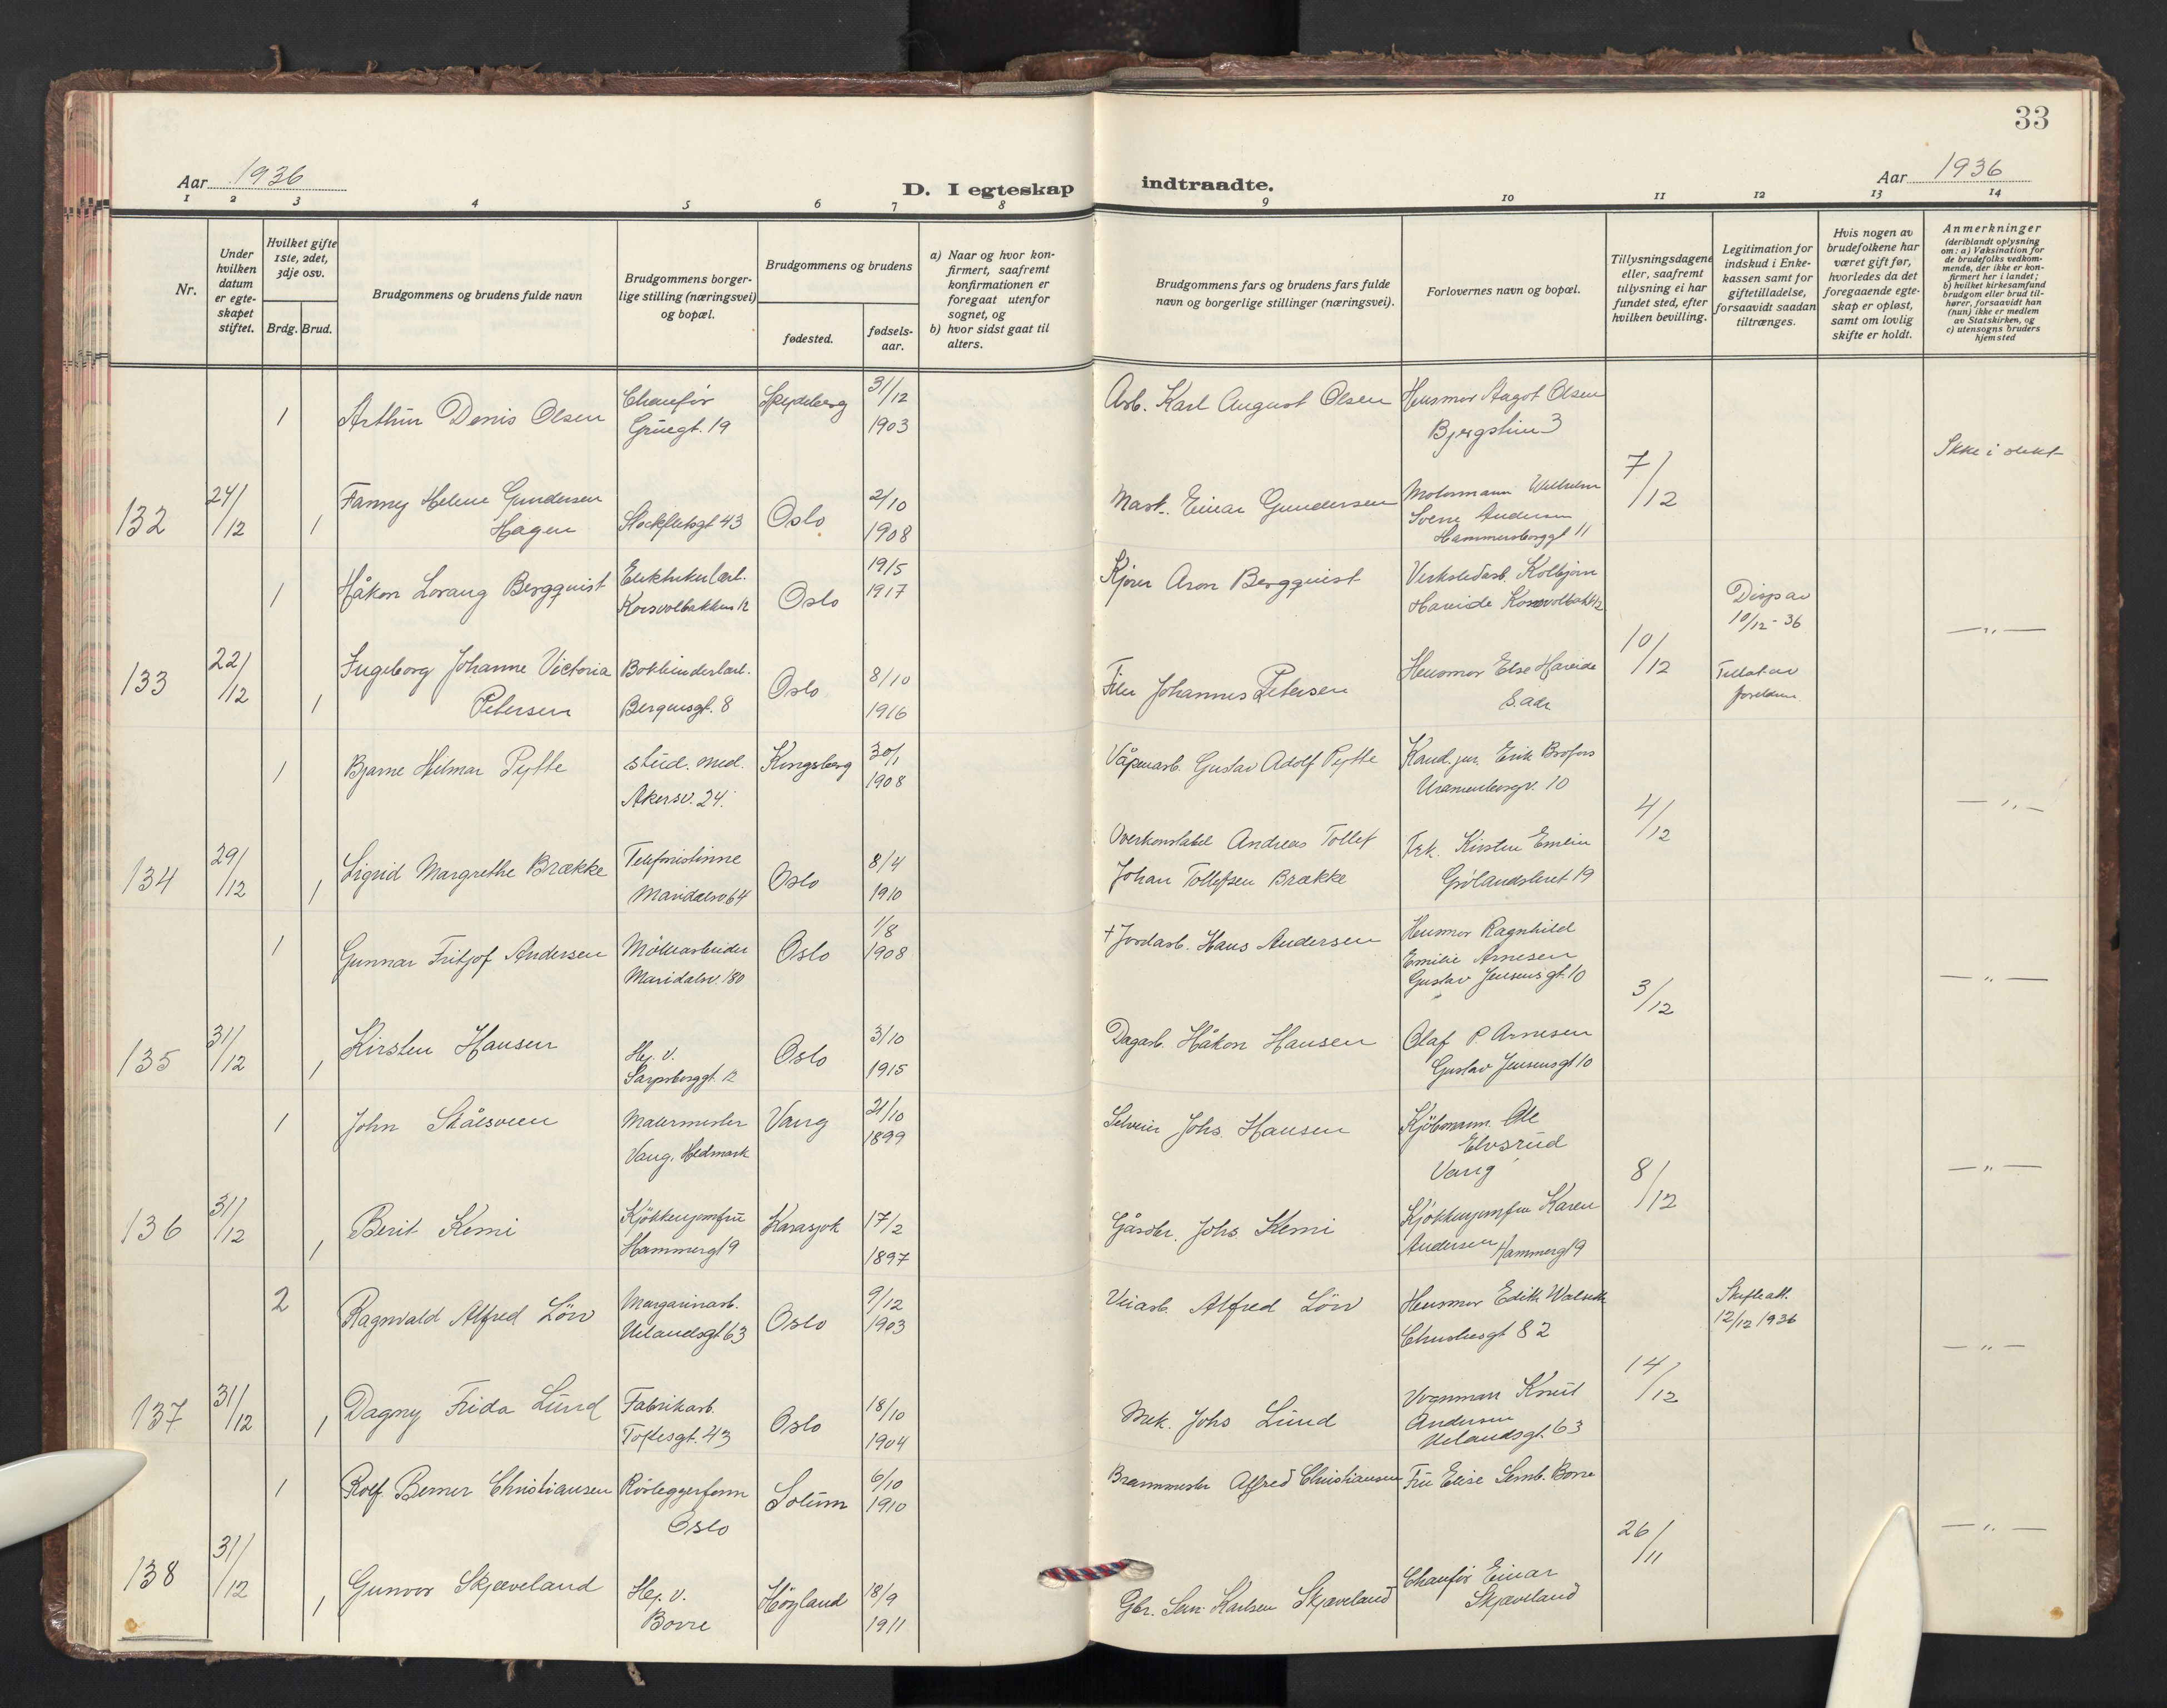 33
Aar 1936
D. I egteskap indtraadte.
Aar 1936
1 2 3 4 5 6 7 8 9 10 11 12 13 14
Nr.
Under hvilken datum er egte-skapet stiftet.
Hvilket gifte 1ste, 2det, 3dje osv.
Brdg. Brud.
Brudgommens og brudens fulde navn
Brudgommens borger-lige stilling (næringsvei) og bopæl.
Brudgommens og brudens
fødested.
fødsels-aar.
a) Naar og hvor kon-firmert, saafremt konfirmationen er foregaat utenfor sognet, og
b) hvor sidst gaat til alters.
Brudgommens fars og brudens fars fulde navn og borgerlige stillinger (næringsvei).
Forlovernes navn og bopæl.
Tillysningsdagene eller, saafremt tillysning ei har fundet sted, efter hvilken bevilling.
Legitimation for indskud i Enke-kassen samt for giftetilladelse, forsaavidt saadan tiltrænges.
Hvis nogen av brudefolkene har været gift før, hvorledes da det foregaaende egte-skap er opløst, samt om lovlig skifte er holdt.
Anmerkninger
(deriblandt oplysning om: a) Vaksination for de brudefolks vedkom-mende, der ikke er kon-firmert her i landet; b) hvilket kirkesamfund brudgom eller brud til-hører, forsaavidt han (hun) ikke er medlem av Statskirken, og c) utensogns bruders hjemsted
1 Arthur Denis Olsen Chaufør Spydeberg 31/12 Arb. Karl August Olsen Husmor Aagot Olsen
Gruegt. 19 1903 Bjergstien 3
Ikke i slekt
132 24/12 1 Fanny Helene Gundersen 2/10 Mask. Einar Gundersen Motormann Wilhelm 7/12
Hagen Stockfletsgt 43 Oslo 1908 Sverre Andersen
Hammersborggt 11
1 Håkon Lorang Bergquist Elektrikerlærl. 19/5 Kjører Aron Bergquist Verkstedarb. Kolbjørn
Korsvolbakken 12 Oslo 1917 Hareide Disp av
10/12-36 — „ —
133 22/12 1 Ingeborg Johanne Victoria Bokbinderlærl. 8/10 Filer Johannes Petersen Husmor Else Hareide 10/12 Tillat. av
Petersen Bergensgt. 8 Oslo 1916 S. adr foreldrene
1 Bjarne Hilmar Pytte stud. med. Kongsberg 30/1 Våpenarb. Gustav Adolf Pytte Kand. jur. Erik Brofoss
Akersv. 24. 1908 Uranienborgv. 10 — „ —
134 29/12 1 Sigrid Margrethe Brække Telefonistinne 8/4 Overkonstabel Andreas Tollef Frk. Kirsten 4/12
Maridalsv 64 Oslo 1910 Johan Tollefsen Brække Grølandsleret 19
1 Gunnar Fritjof Andersen Møllearbeider Oslo 1/8 † Jordarb. Hans Andersen Husmor Ragnhild
Maridalsv. 180 1908 Emilie Arnesen
Gustav Jensens gt. 10 — „ —
135 31/12 1 Kirsten Hansen Hj. v. Oslo 3/10 Dagarb. Håkon Hansen Olaf P Arnesen 3/12
Sarpsborggt. 12 1915 Gustav Jensensgt 10
1 John Stålsveen Malermester Vang 21/10 Selveier Johs. Hansen Kjøbmann Ole
Vang, Hedmark 1899 Elvsrud
Vang — „ —
136 31/12 1 Berit Kemi Kjøkkenjomfru Karasjok 17/2 Gårdbr. Johs. Kemi Kjøkkenjomfru Karen 8/12
Hammergt 9 1897 Andersen Hammergt 9
2 Ragnvald Alfred Løw Margarinarb. 9/12 Veiarb. Alfred Löw Husmor Edith Skifteatt.
Uelandsgt 63 Oslo 1903 Christiesgt 82 12/12 1936
— „ —
137 31/12 1 Dagny Frida Lund Fabrikarb. 18/10 Mek. Johs Lund Vognmann Knut 14/12
Toftesgt. 43 Oslo 1904 Andersen
Uelandsgt. 63
1 Rolf Berner Christiansen Rørleggerform 6/10 Brannmester Alfred Christiansen Fru Elise Semb. Borre
Oslo Solum 1910 — „ —
138 31/12 1 Gunvor Skjæveland Hj. v. Høyland 18/9 Gbr. Karlsen Skjæveland Chaufør Einar 26/11
Borre 1911 Skjæveland